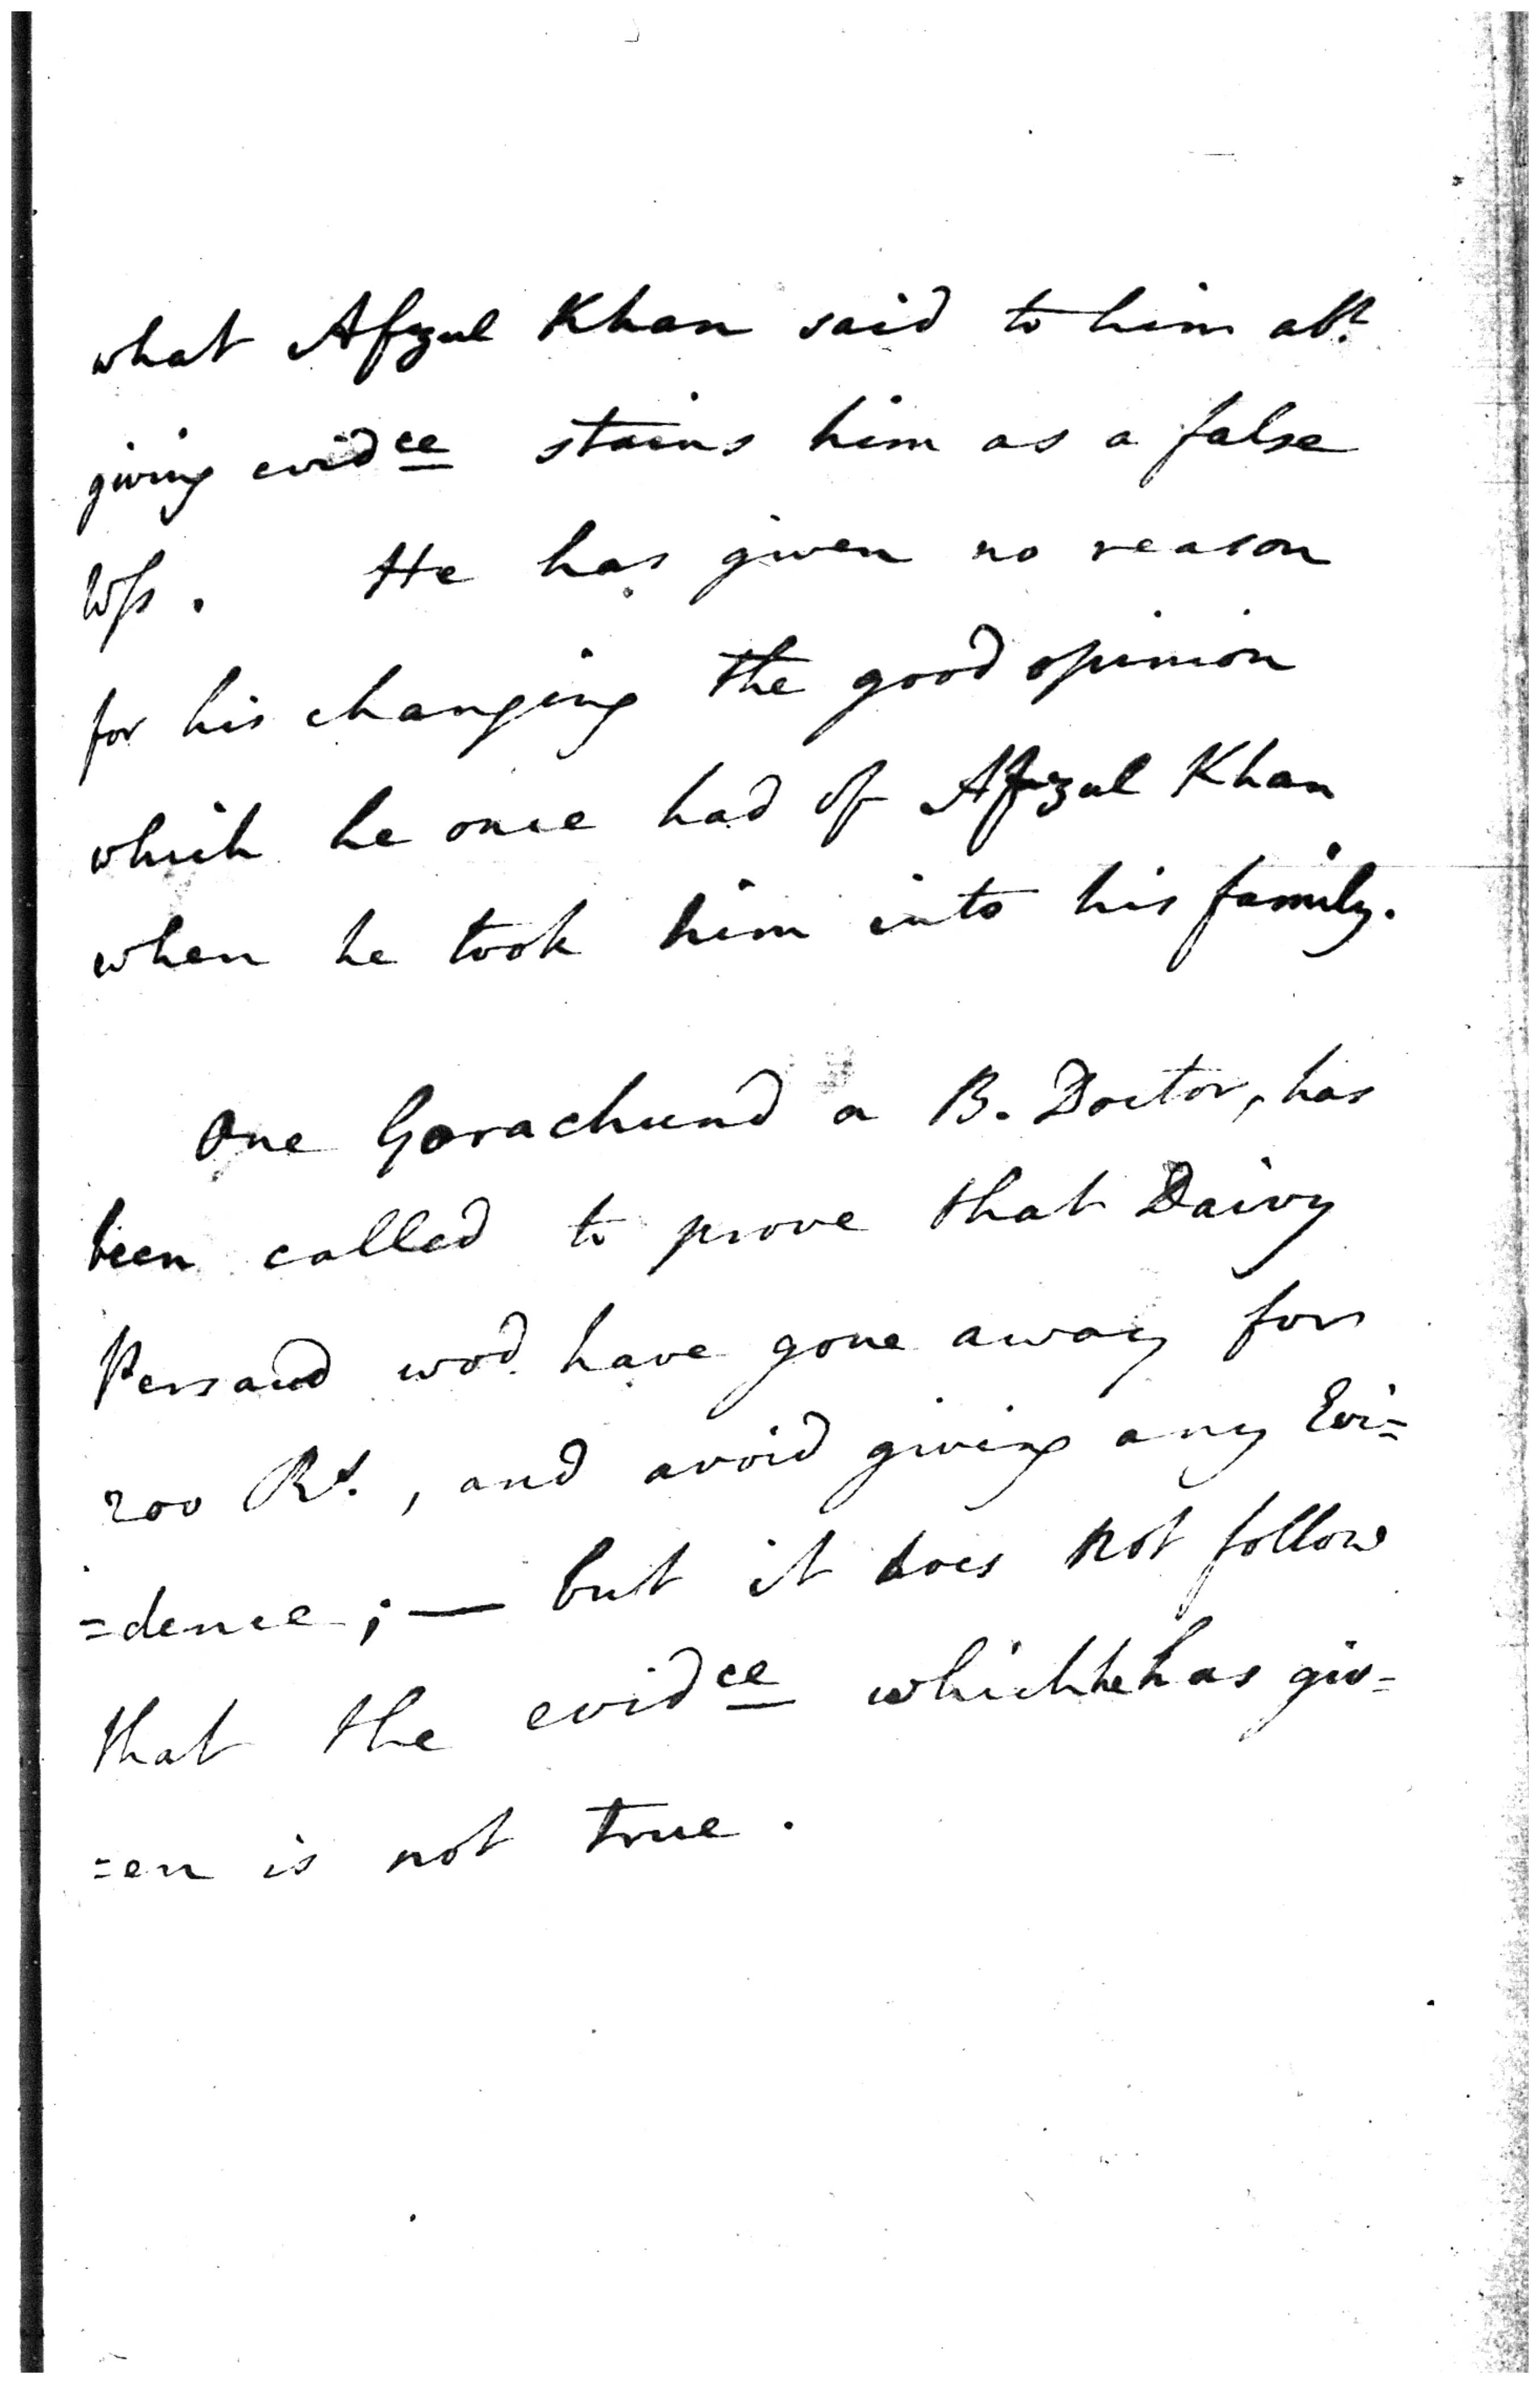 what Afzul Khan said to him abt.
giving evidce stains him as a false
Wss. He has given no reason
for his changing the good opinion
which he once had of Afzul Khan
when he took him into his family.
One Gorachund a B. Doctor, has
been called to prove that Daivy
Persaud wod. have gone away for
200 Rs., and avoid giving any Evi=
=dence; — but it does not follow
that the evidce which he has giv=
=en is not true.